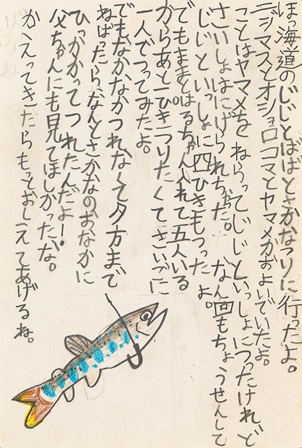 ほっ海道のじじとばばとさかなつりに行たよ。
ニジマスとオショロコマとヤマメがおよいでいたよ。
ことはヤマメをねらってじじといっしょにつったけれど
さいしょはにげられちゃた。なん回もちょうせんして
じじといっしょに四ひきもつったよ。
でもままとぱぱとはるちゃん入れて五人いる
からあと一ぴきつりたくてさいごに
一人でつってみたよ。
でもなかなかつれなくて夕方まで
ねばったら、なんとさかなのおなかに
ひっかかってつれたんだよー!
父ちゃんにも見てほしかったな。
かえってきたらもっとおしえてあげるね。